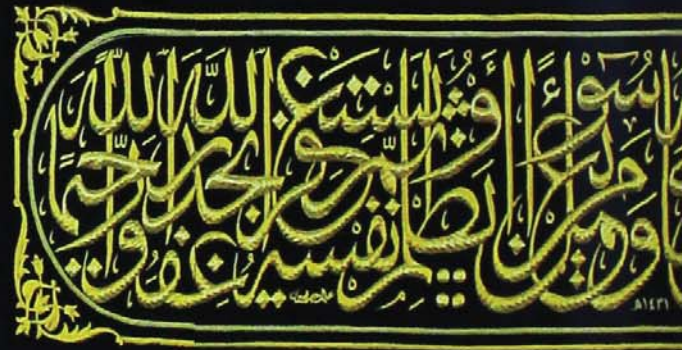 وَمَن يَعْمَلْ سُوءًا أَوْ يَظْلِمْ نَفْسَهُ ثُمَّ يَسْتَغْفِرِ اللَّهَ يَجِدِ اللَّهَ غَفُورًا رَّحِيمًا
١٤٣١هـ